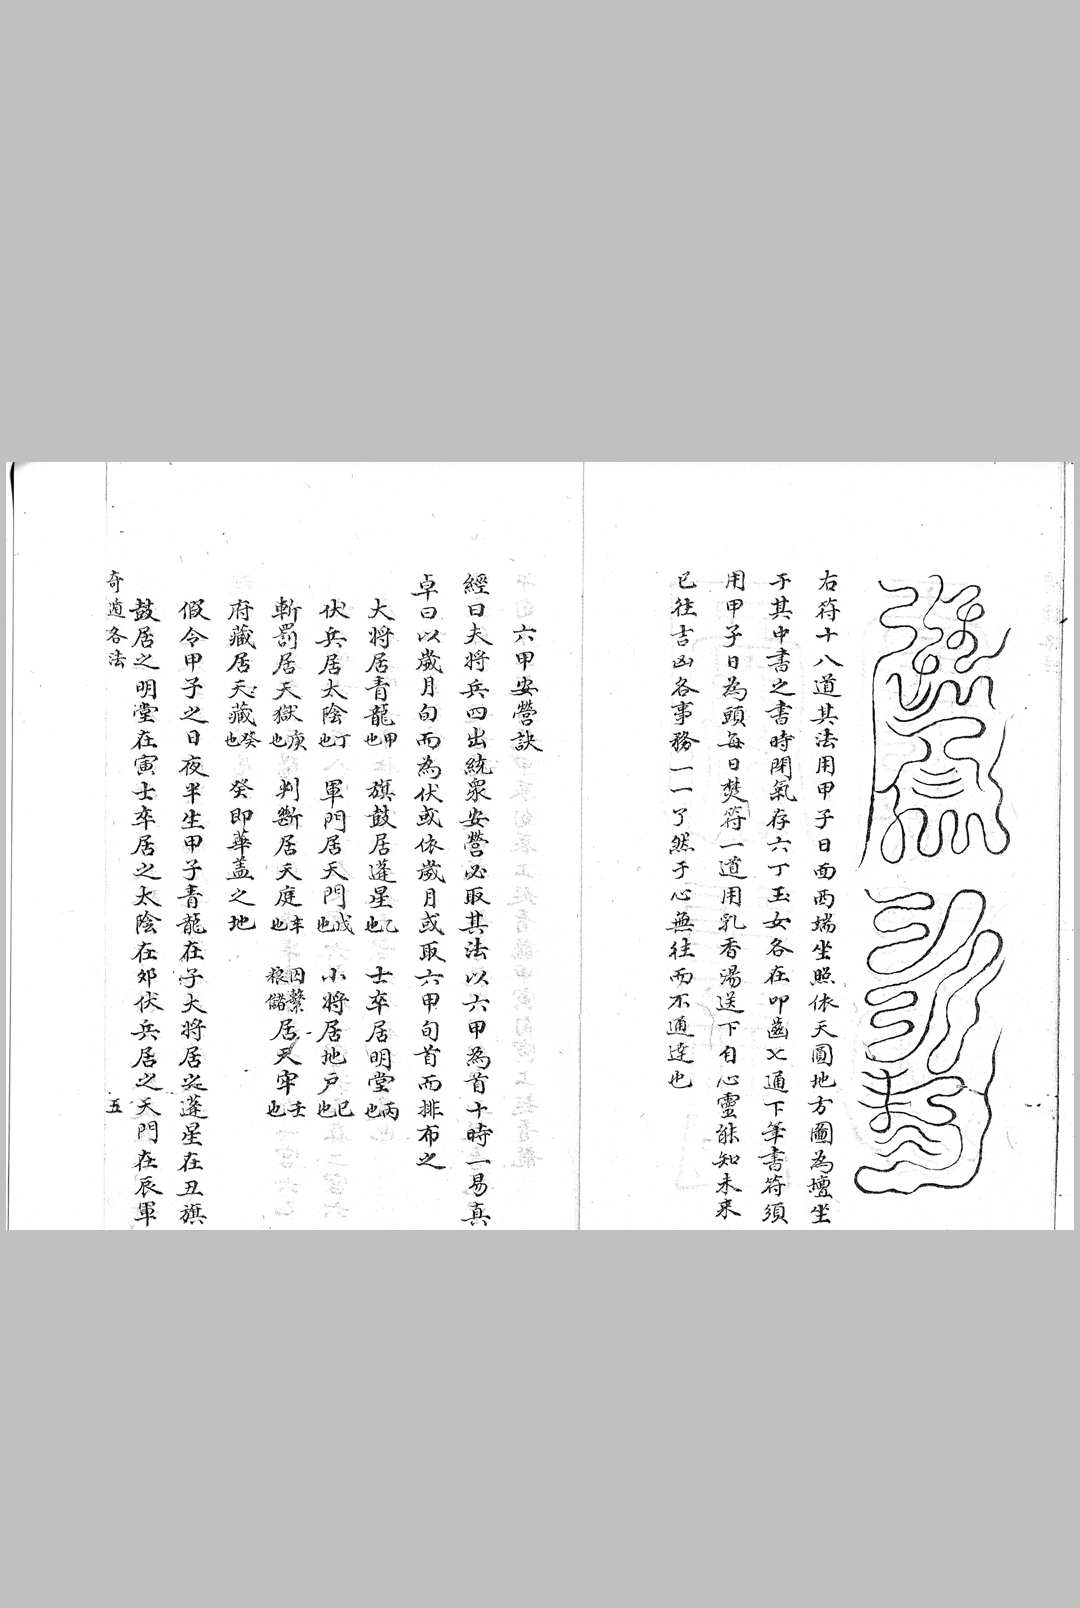 右符十八道其法用甲子日面西端坐照依天圓地方圖為壇坐
于其中書之書時閉氣存六丁玉女各在叩齒七通下筆書符須
用甲子日為頭每日焚符一道用乳香湯送下自心靈能知未來
已往吉凶各事務一一了然于心無往而不通達也
六甲安營訣
經曰夫將兵四出統衆安營必取其法以六甲為首十時一易真
卓曰以歲月旬而為伏或依歲月或取六甲旬首而排布之
大將居青龍甲也 旗鼓居蓬星乙也 士卒居明堂丙也
伏兵居太陰丁也 軍門居天門戊也 小將居地戶巳也
斬罰居天獄庚也 判斷居天庭辛也 囚繫粮儲居天牢壬也
府藏居天藏癸也 癸即華蓋之地
假令甲子之日夜半生甲子青龍在子大將居之蓬星在丑旗
鼓居之明堂在寅士卒居之太陰在夘伏兵居之天門在辰軍
奇遁各法 五